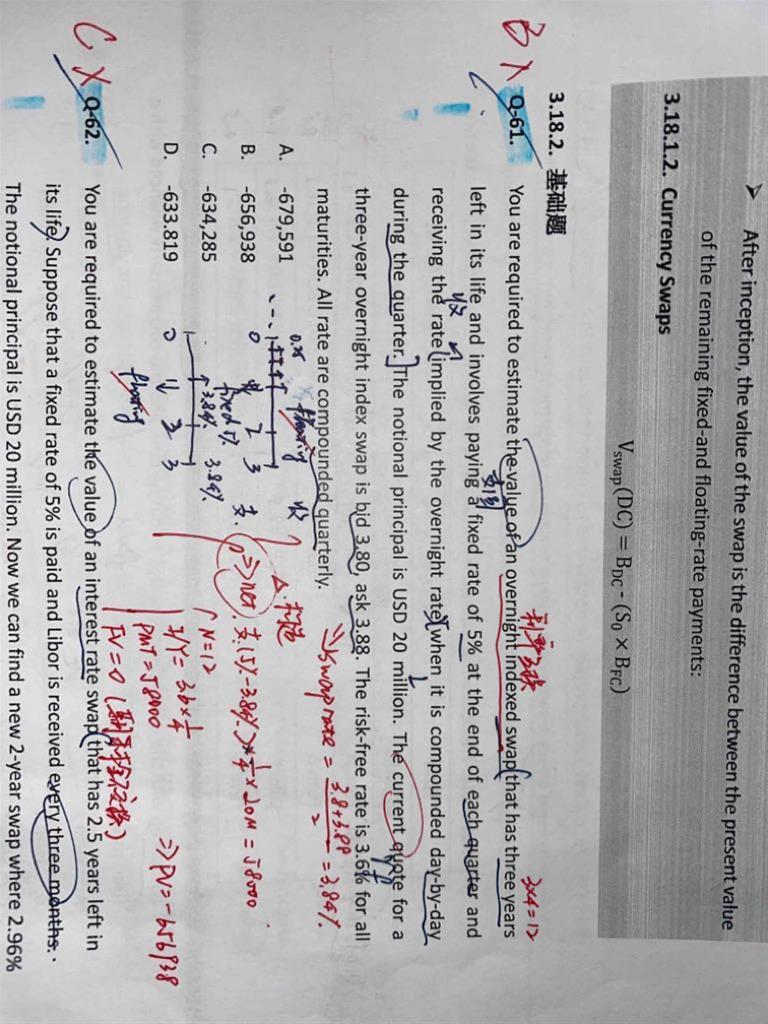 ➢ After inception, the value of the swap is the difference between the present value
of the remaining fixed-and floating-rate payments:
3.18.1.2. Currency Swaps
V swap (DC) = B DC - (S₀ × B FC)
3.18.2. 基础题
B X Q-61. You are required to estimate the value of an overnight indexed swap that has three years
left in its life and involves paying a fixed rate of 5% at the end of each quarter and
receiving the rate implied by the overnight rate when it is compounded day-by-day
during the quarter. The notional principal is USD 20 million. The current quote for a
three-year overnight index swap is bid 3.80, ask 3.88. The risk-free rate is 3.6% for all
maturities. All rate are compounded quarterly.
A. -679,591
B. -656,938
C. -634,285
D. -633.819
利率互换
3×4=12
支付
收
⇒ swap rate = 3.8+3.88 / 2 = 3.84%
0.25
floating 收
0 1 2 3
fixed 5% 支.
3.84% 3.84%
0 1 2 3
floating
⇒ net. 支.(5%-3.84%)×1/4×20M = 58000
N=12
I/Y = 3.6×1/4
PMT=58000
FV=0
⇒ PV=-656938
C X Q-62. You are required to estimate the value of an interest rate swap that has 2.5 years left in
its life. Suppose that a fixed rate of 5% is paid and Libor is received every three months.
The notional principal is USD 20 million. Now we can find a new 2-year swap where 2.96%